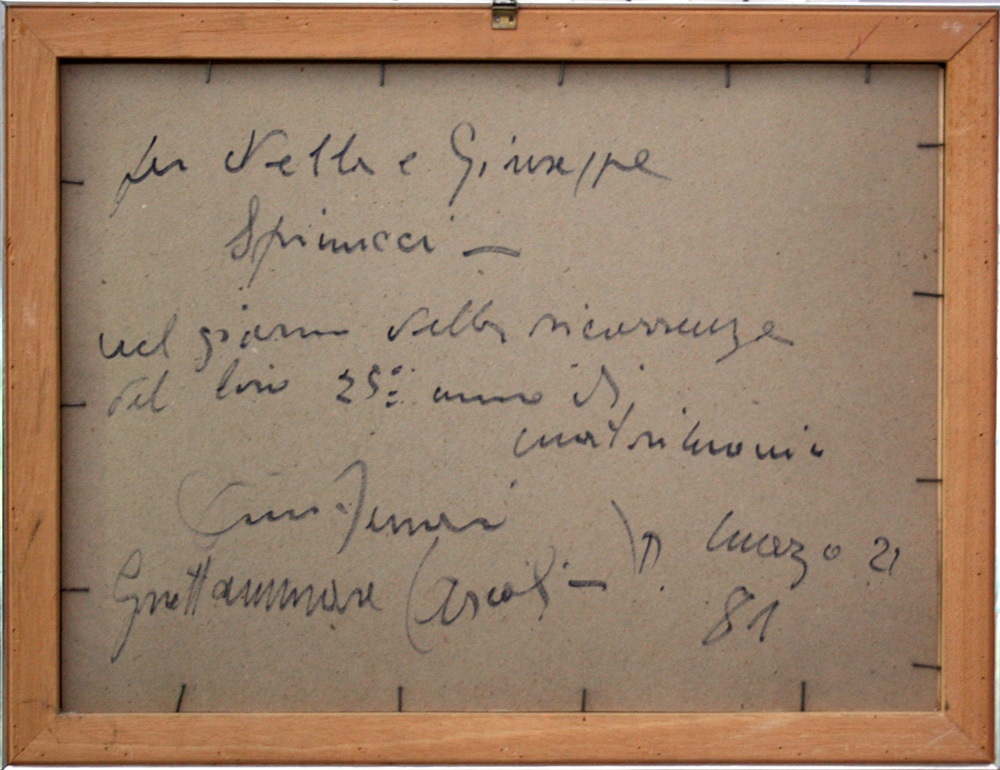 per Nella e Giuseppe
Spinucci —
nel giorno della ricorrenza
del loro 25° anno di
matrimonio
Ferrari
Grottammare (Ascoli –) P. marzo 21
81